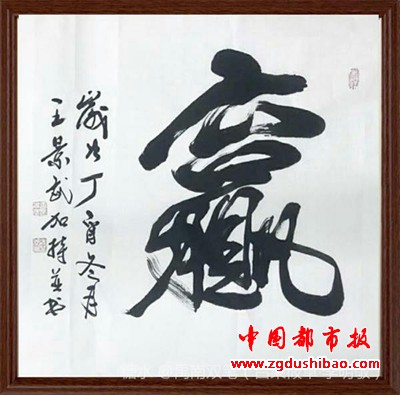 贏
歲次丁酉冬月
王景武加持并书
中国都市报
www.zgdushibao.com